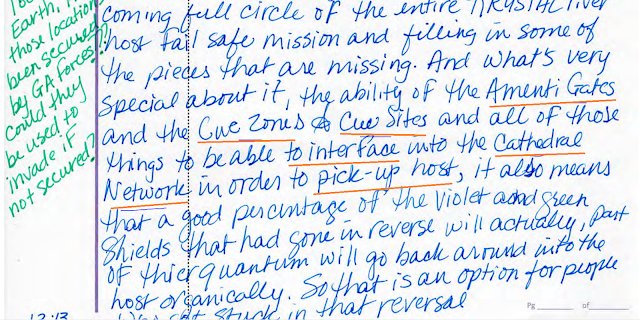 Earth.
those location
been secured
by GA forces?
Could they
be used to
invade if
not secured?
coming full circle of the entire KRYSTHL river
host fail safe mission and filling in some of
the pieces that are missing. And what's very
special about it, the ability of the Amenti Gates
and the Cue Zones & Cue Sites and all of those
things to be able to interface into the Cathedral
Network in order to pick-up host, it also means
that a good percentage of the Violet and green
Shields that had gone in reverse will actually, part
of thier quantum will go back around into the
host organically. So that is an option for people
stuck in that reversal
Pg of
12:13